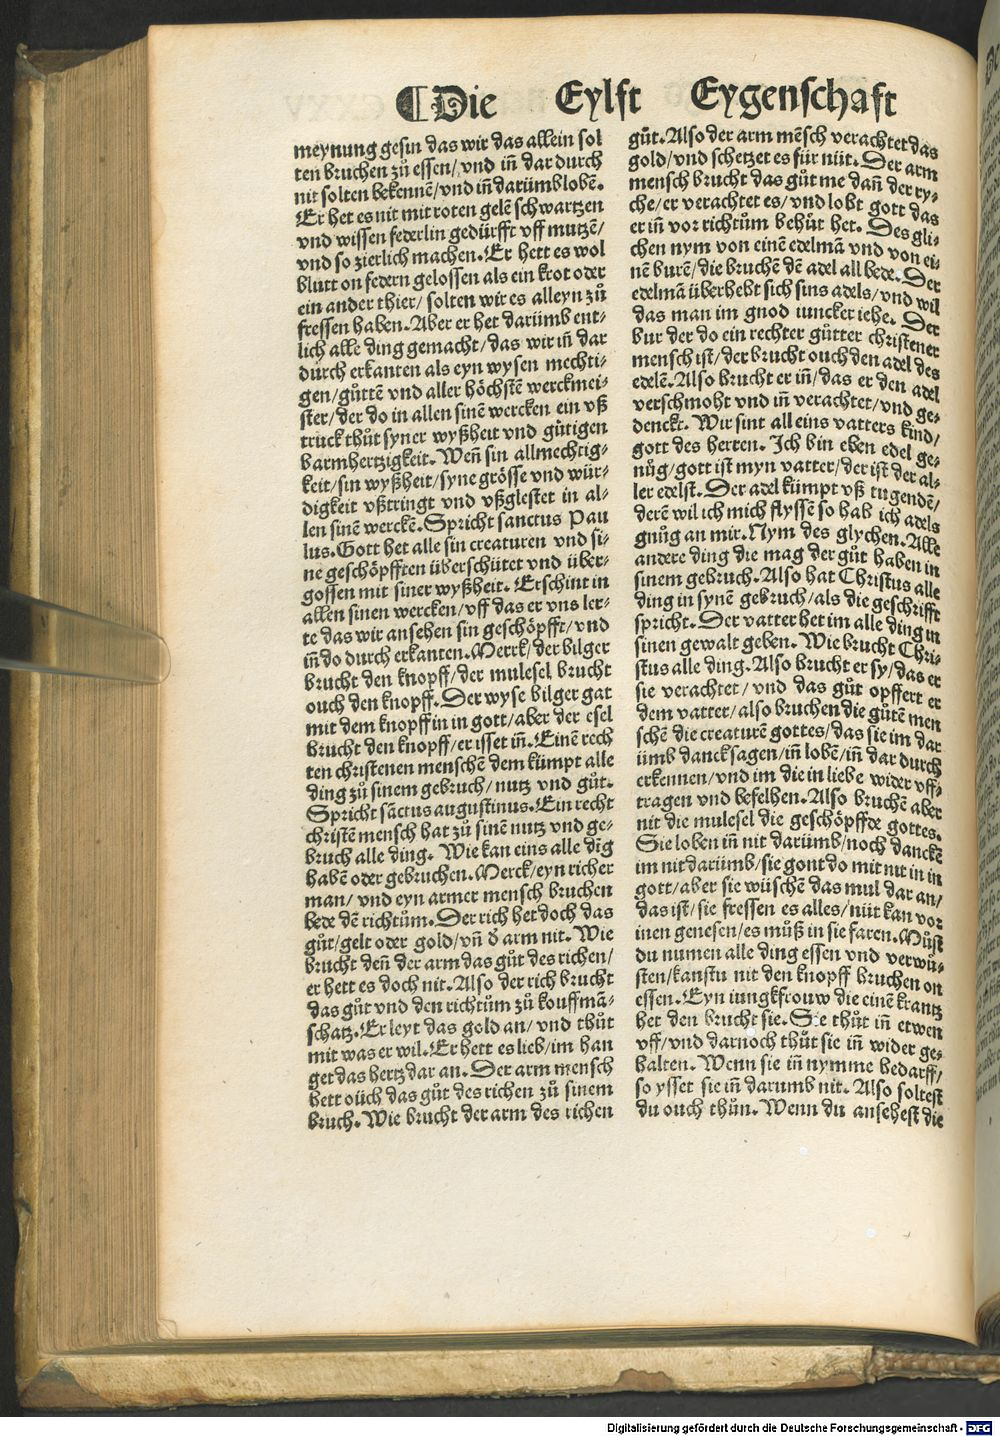 ¶Die Eylft Eygenschaft
meynung gesin das wir das allein sol
ten bruchen zů essen/ vnd in̄ dar durch
nit solten bekennē/ vnd in̄ darümb lobē.
Er het es nit mit roten gelē schwartzen
vnd wissen federlin gedürfft vff mutzē/
vnd so zierlich machen. Er hett es wol
blutt on federn gelossen als ein krot oder
ein ander thier/ solten wir es alleyn zů
fressen haben. Aber er het darümb ent⸗
lich alle ding gemacht/ das wir in̄ dar
durch erkanten als eyn wysen mechti⸗
gen/ gůttē vnd aller höchstē werckmei⸗
ster/ der do in allen sinē wercken ein vß
truck thůt syner wyßheit vnd gůtigen
barmhertzigkeit. Wen̄ sin allmechtig⸗
keit/ sin wyßheit/ syne grösse vnd wür⸗
digkeit vßtringt vnd vßglestet in al⸗
len sinē werckē. Spricht sanctus Pau
lus. Gott het alle sin creaturen vnd si⸗
ne geschöpfften überschütet vnd über⸗
gossen mit siner wyßheit. Erschint in
allen sinen wercken/ vff das er vns ler⸗
te das wir ansehen sin geschöpfft/ vnd
in̄ do durch erkanten. Merck/ der bilger
brucht den knopff/ der mulesel brucht
ouch den knopff. Der wyse bilger gat
mit dem knopff in in gott/ aber der esel
brucht den knopff/ er isset in̄. Einē rech
ten christenen menschē dem kümpt alle
ding zů sinem gebruch/ nutz vnd gůt.
Spricht sāctus augustinus. Ein recht
christē mensch hat zů sinē nutz vnd ge⸗
bruch alle ding. Wie kan eins alle dīg
habē oder gebruchen. Merck/ eyn richer
man/ vnd eyn armer mensch bruchen
bede dē richtům. Der rich het doch das
gůt/ gelt oder gold/ vn̄ d̄ arm nit. Wie
brucht den̄ der arm das gůt des richen/
er hett es doch nit. Also der rich brucht
das gůt vnd den richtům zů kouffmā⸗
schatz. Er leyt das gold an/ vnd thůt
mit was er wil. Er hett es lieb/ im han
get das hertz dar an. Der arm mensch
hett ouch das gůt des richen zů sinem
bruch. Wie brucht der arm des richen
gůt. Also der arm mēsch verachtet das
gold/ vnd schetzet es für nüt. Der arm
mensch brucht das gůt me dan̄ der ry⸗
che/ er verachtet es/ vnd lobt gott das
er in̄ vor richtům behůt het. Des gli⸗
chen nym von einē edelmā vnd von ei⸗
nē burē/ die bruchē dē adel all bede. Der
edelmā überhebt sich sins adels/ vnd wil
das man im gnod iuncker iehe. Der
bur der do ein rechter gůtter christener
mensch ist/ der brucht ouch den adel des
edelē. Also brucht er in̄/ das er den adel
verschmoht vnd in̄ verachtet/ vnd ge⸗
denckt. Wir sint all eins vatters kind/
gott des herren. Ich bin eben edel ge⸗
nůg/ gott ist myn vatter/ der ist der al⸗
ler edelst. Der adel kümpt vß tugendē/
derē wil ich mich flyssē so hab ich adels
gnůg an mir. Nym des glychen. Alle
andere ding die mag der gůt haben in
sinem gebruch. Also hat Christus alle
ding in synē gebruch/ als die geschrifft
spricht. Der vatter het im alle ding in
sinen gewalt geben. Wie brucht Chri⸗
stus alle ding. Also brucht er sy/ das er
sie verachtet/ vnd das gůt opffert er
dem vatter/ also bruchen die gůtē men
schē die creaturē gottes/ das sie im dar
ümb dancksagen/ in̄ loben/ in̄ dar durch
erkennen/ vnd im die in liebe wider vff⸗
tragen vnd befelhen. Also bruchē aber
nit die mulesel die geschöpffde gottes.
Sie loben in̄ nit darümb/ noch danckē
im nit darümb/ sie gont do mit nit in in
gott/ aber sie wüschē das mul dar an/
das ist/ sie fressen es alles/ nüt kan vor
inen genesen/ es můß in sie faren. Můst
du numen alle ding essen vnd verwů⸗
sten/ kanstu nit den knopff bruchen on
essen. Eyn iungkfrouw die einē krantz
het den brucht sie. Sie thůt in̄ etwen
vff/ vnd darnoch thůt sie in̄ wider ge⸗
halten. Wenn sie in̄ nymme bedarff/
so ysset sie in̄ darumb nit. Also soltest
du ouch thůn. Wenn du ansehest die
Digitalisierung gefördert durch die Deutsche Forschungsgemeinschaft - DFG